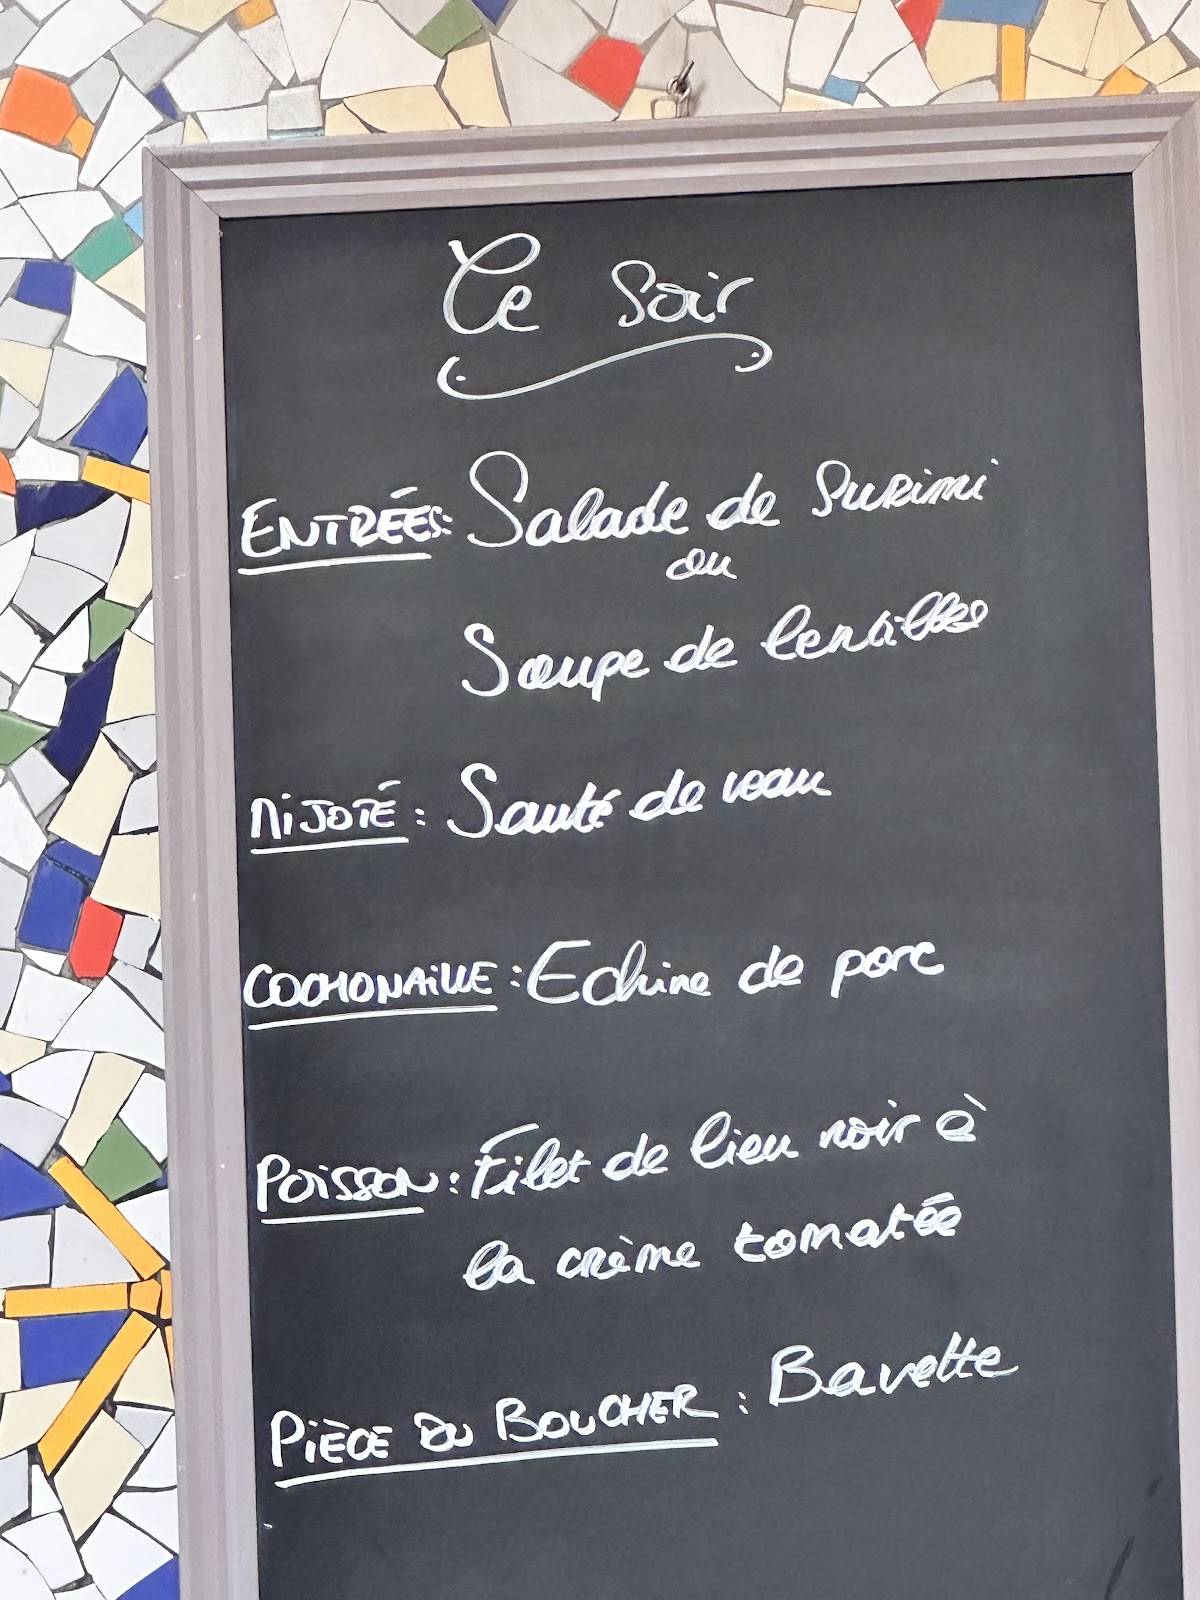 Ce Soir
ENTRÉES: Salade de Surimi
ou
Soupe de lentilles
MIJOTÉ : Sauté de veau
COCHONAILLE : Echine de porc
POISSON : Filet de lieu noir à
la crème tomatée
PIÈCE DU BOUCHER : Bavette